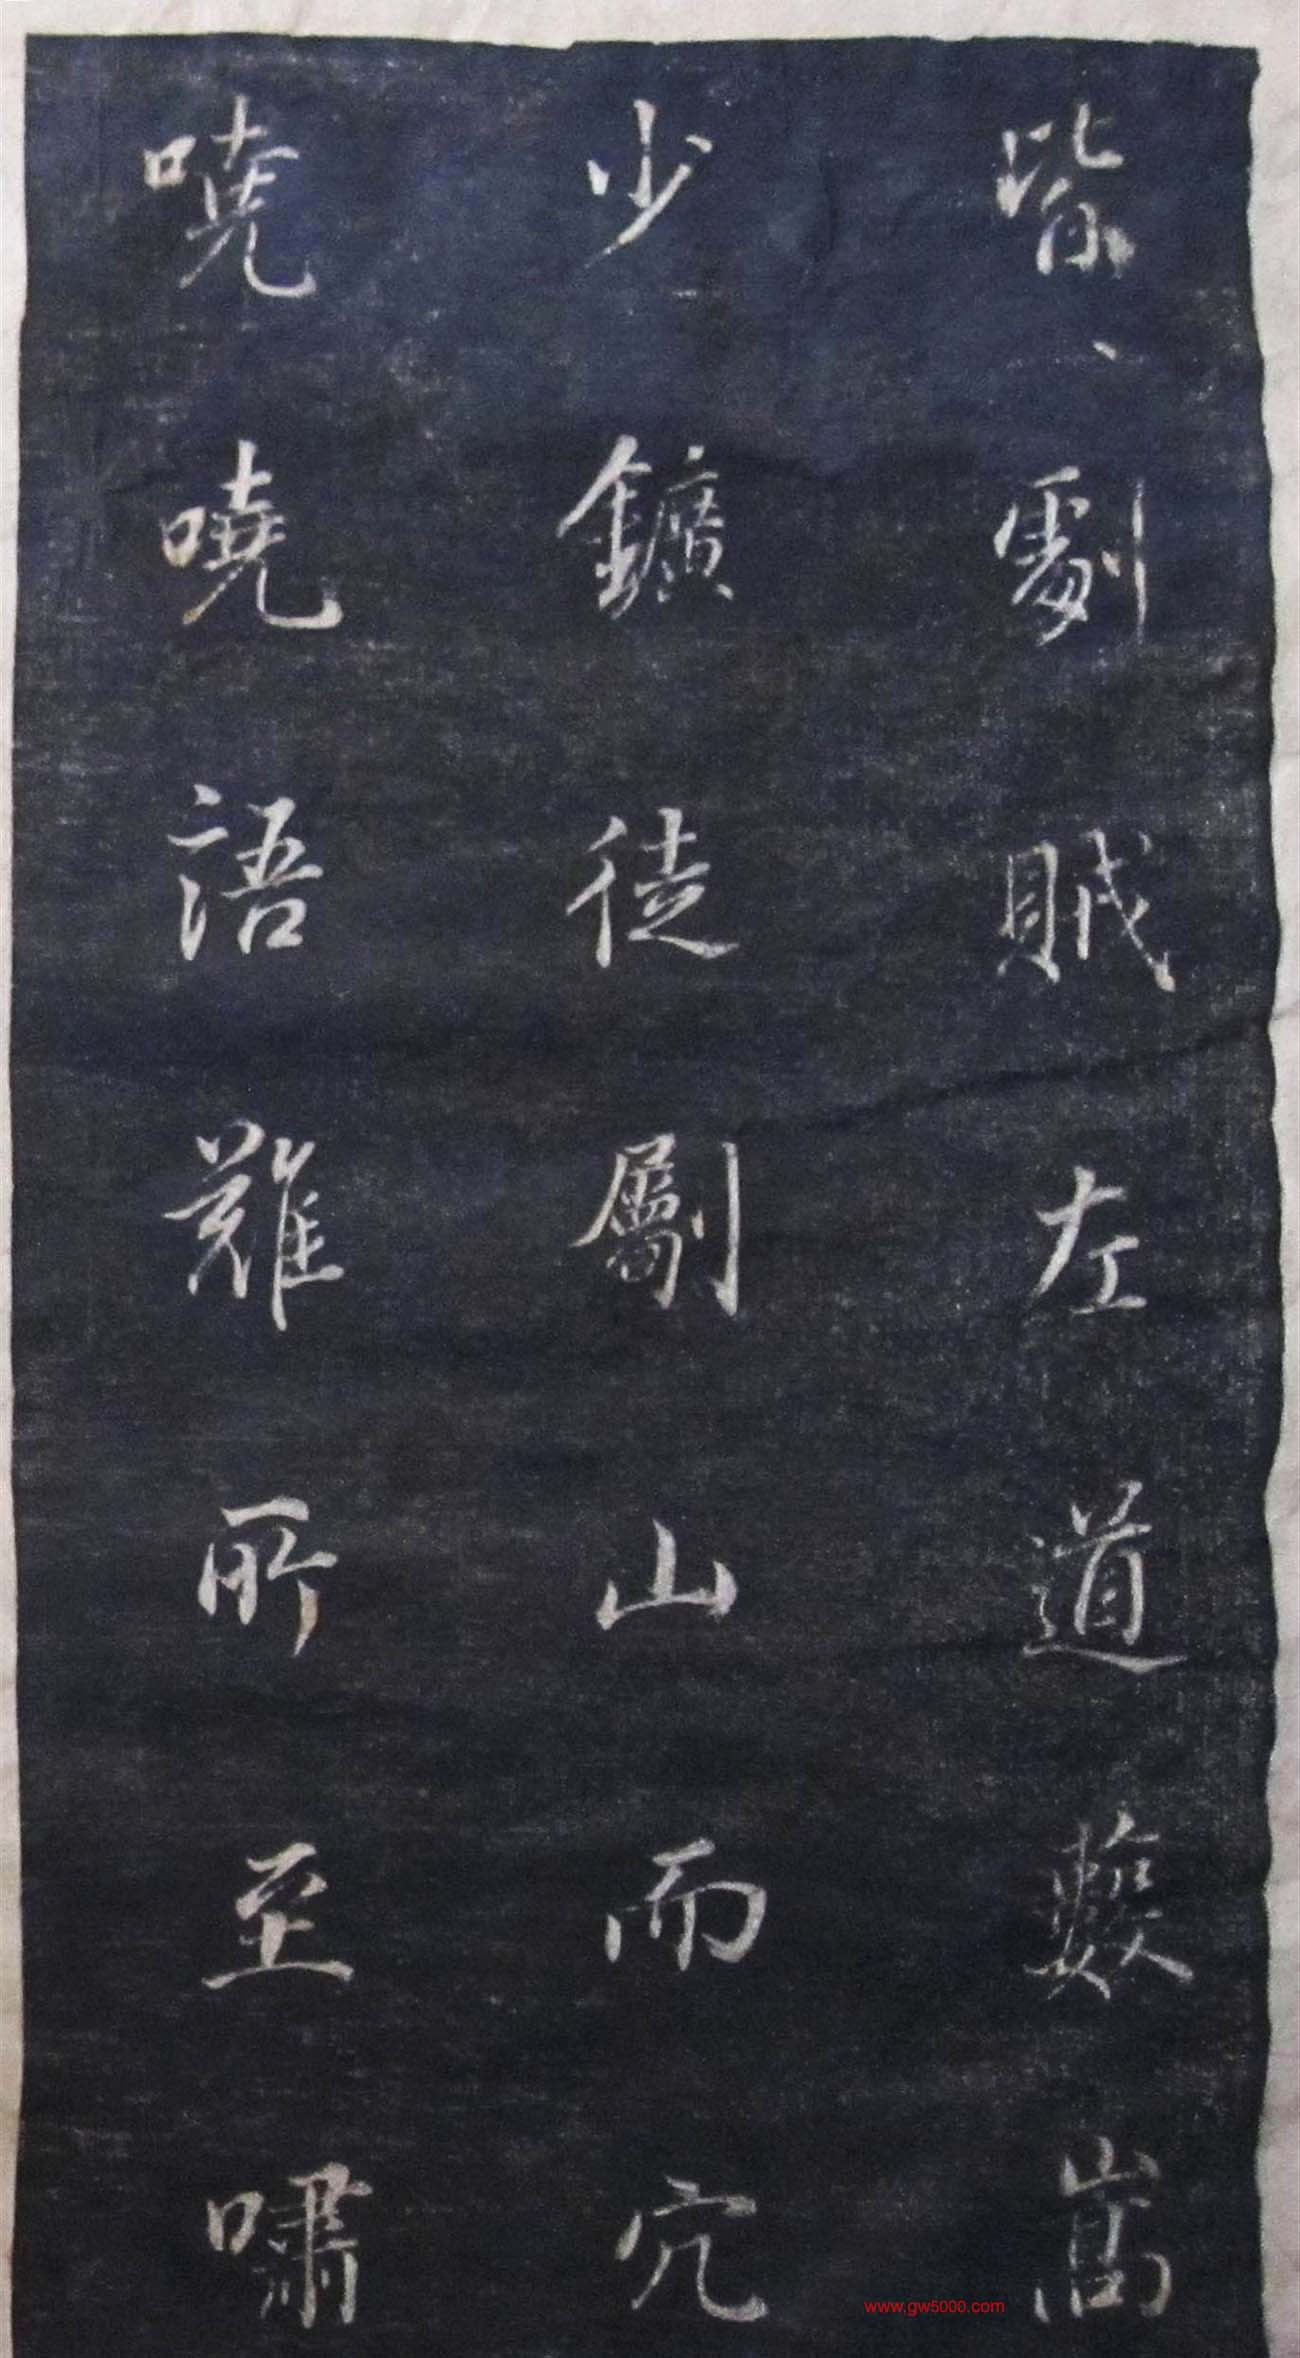 柴、劇賊左道藪嵩
少鑛徒劚山而穴
嘵嘵語難所至嘯
www.gw5000.com